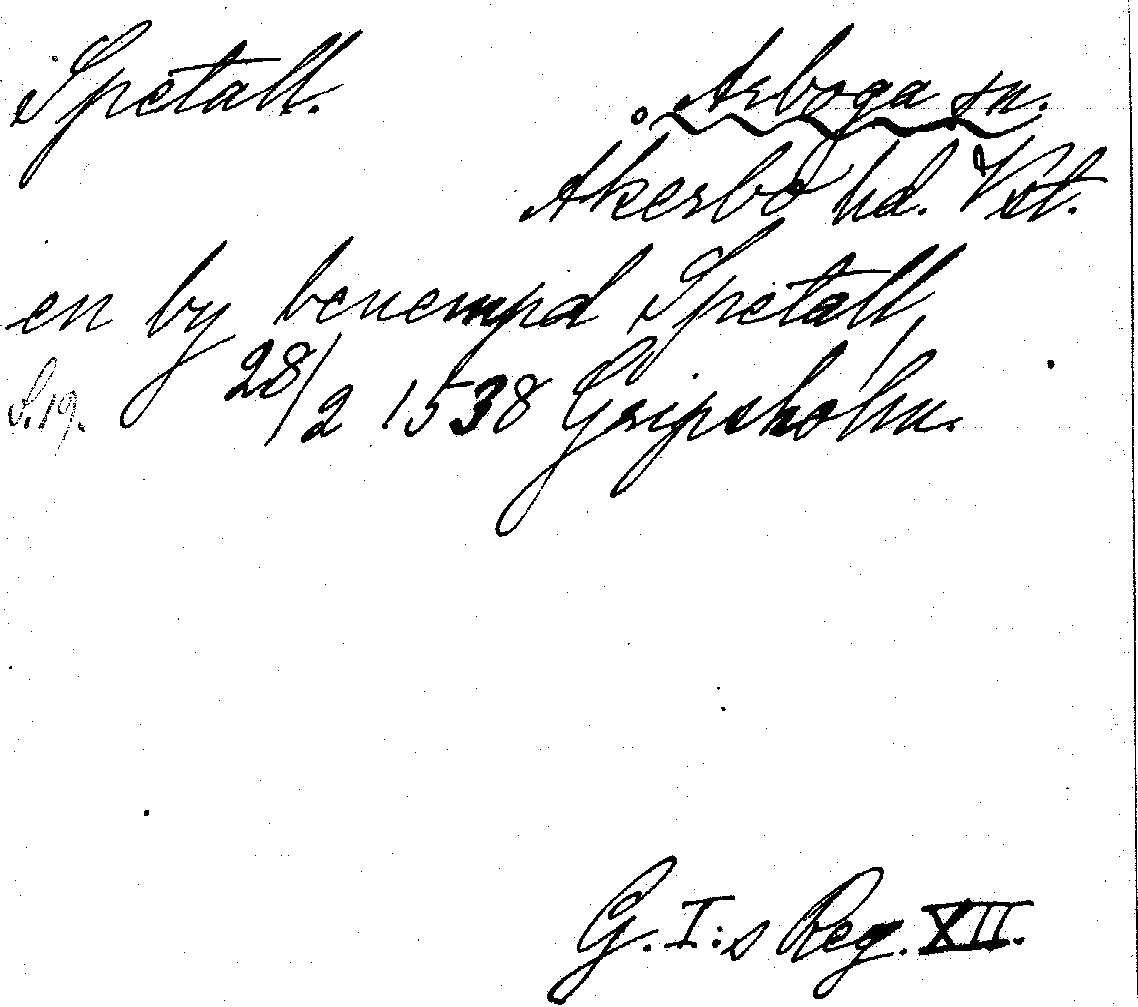 Spetall.
Arboga sn.
Åkerbo hd. Vst.
en by benempd Spetall,
S. 19. 28/2 1538 Gripsholm.
G. I:s Reg. XII.